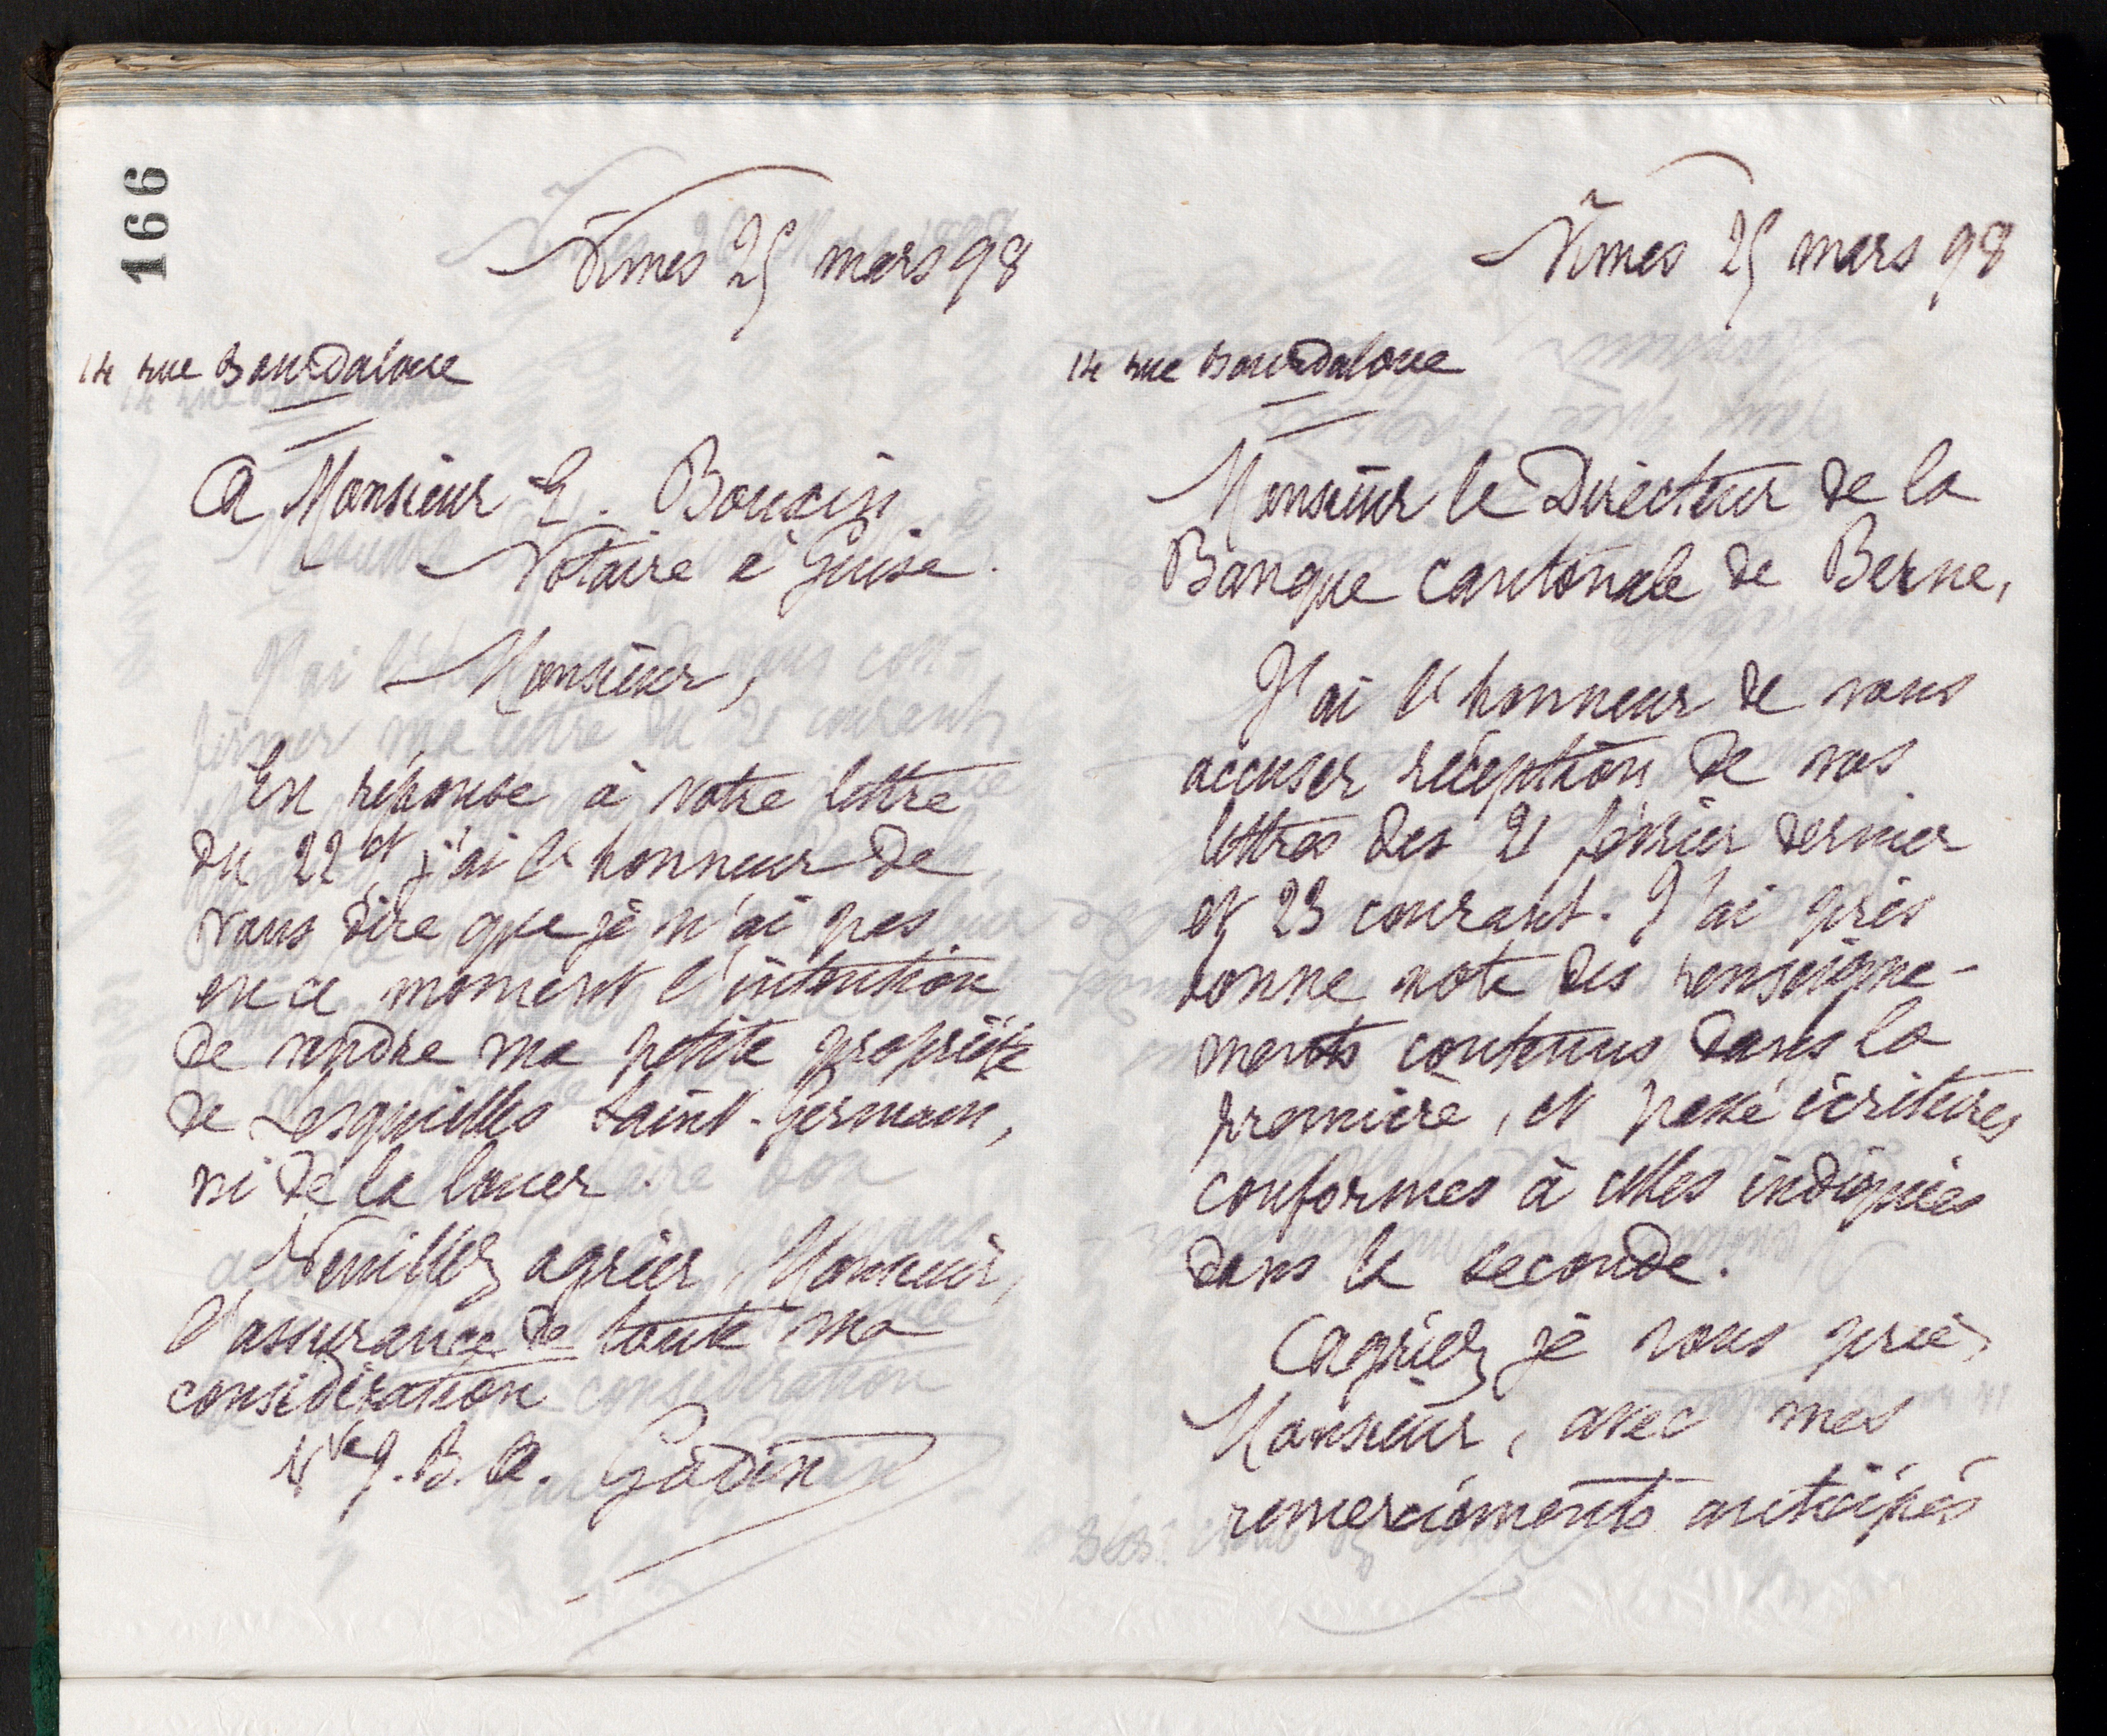 166
Nîmes 25 mars 98
14 rue Bourdaloue
A Monsieur E. Bouxin
Notaire à Guise.
Monsieur,
En réponse à votre lettre
du 22 ct, j'ai l'honneur de
vous dire que je n'ai pas
en ce moment l'intention
de vendre ma petite propriété
de Lesquielles Saint-Germain,
ni de la louer.
Veuillez agréer, Monsieur,
l'assurance de toute ma
considération
Vve J. B. A. Godin
Nîmes 25 mars 98
14 rue Bourdaloue
Monsieur le Directeur de la
Banque cantonale de Berne,
J'ai l'honneur de vous
accuser réception de vos
lettres des 21 février dernier
et 23 courant. J'ai pris
bonne note des renseigne-
ments contenus dans la
première, et passé écritures
conformes à celles indiquées
dans la seconde.
Agréez je vous prie,
Monsieur, avec mes
remerciements anticipés